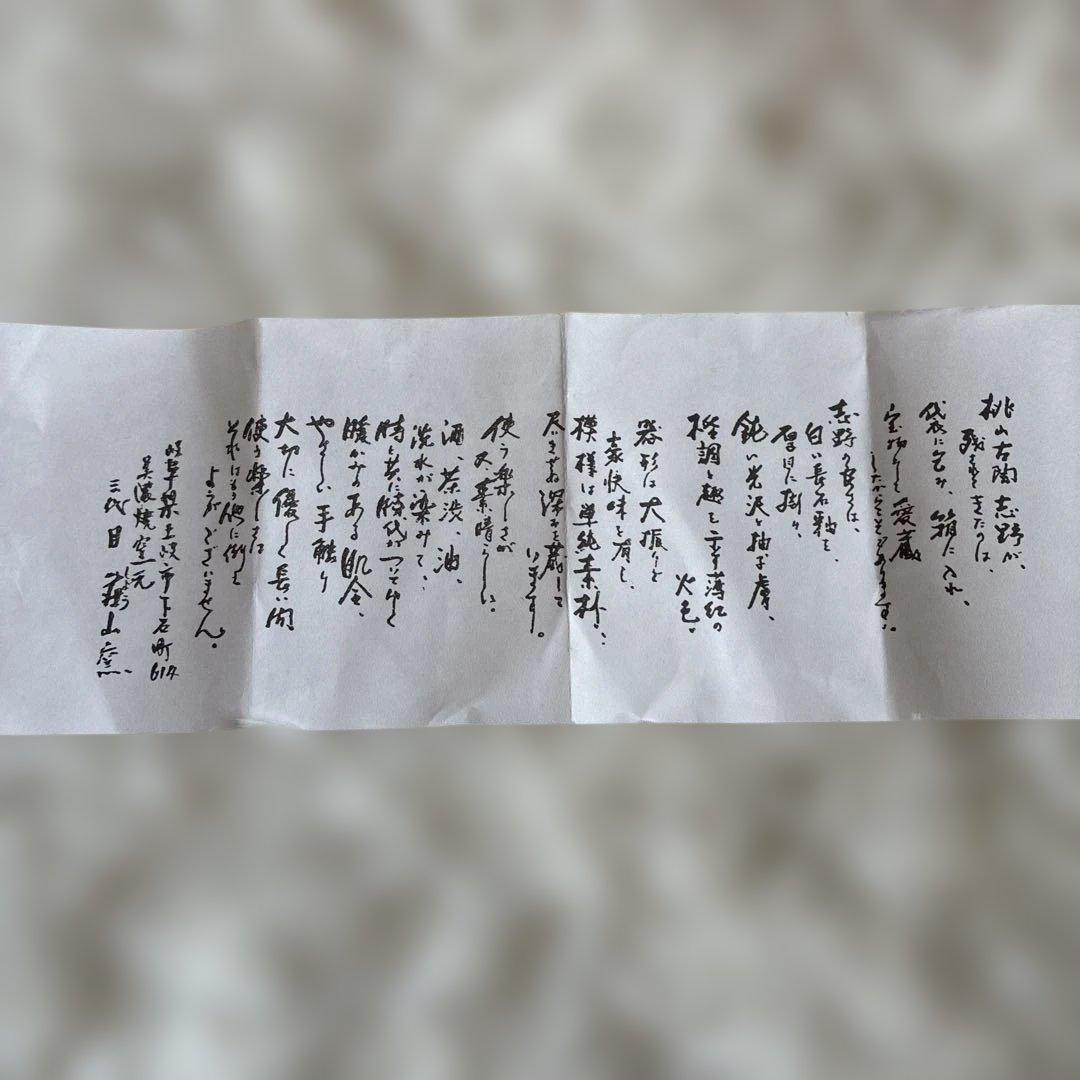 桃山古陶志野が、
残ってきたのは、
袋に包み、箱に入れ、
宝物として愛蔵
したからであります。
志野の良さは、
白い長石釉を、
厚目に掛け、
鈍い光沢と柚子膚、
格調と趣を宿す薄紅の
火色。
器形は大振りと
豪快味を有し、
模様は単純素朴、
尽きぬ深みを蔵して
います。
使う楽しさが
又素晴らしい。
酒、茶渋、油、
洗水が染みて、
時と共に時代がついてゆく
暖かみのある肌合、
やさしい手触り
大切に優しく長い間
使う楽しさは
それはもう他に例え
ようがございません。
岐阜県土岐市下石町614
美濃焼窯元
三代目 山窯